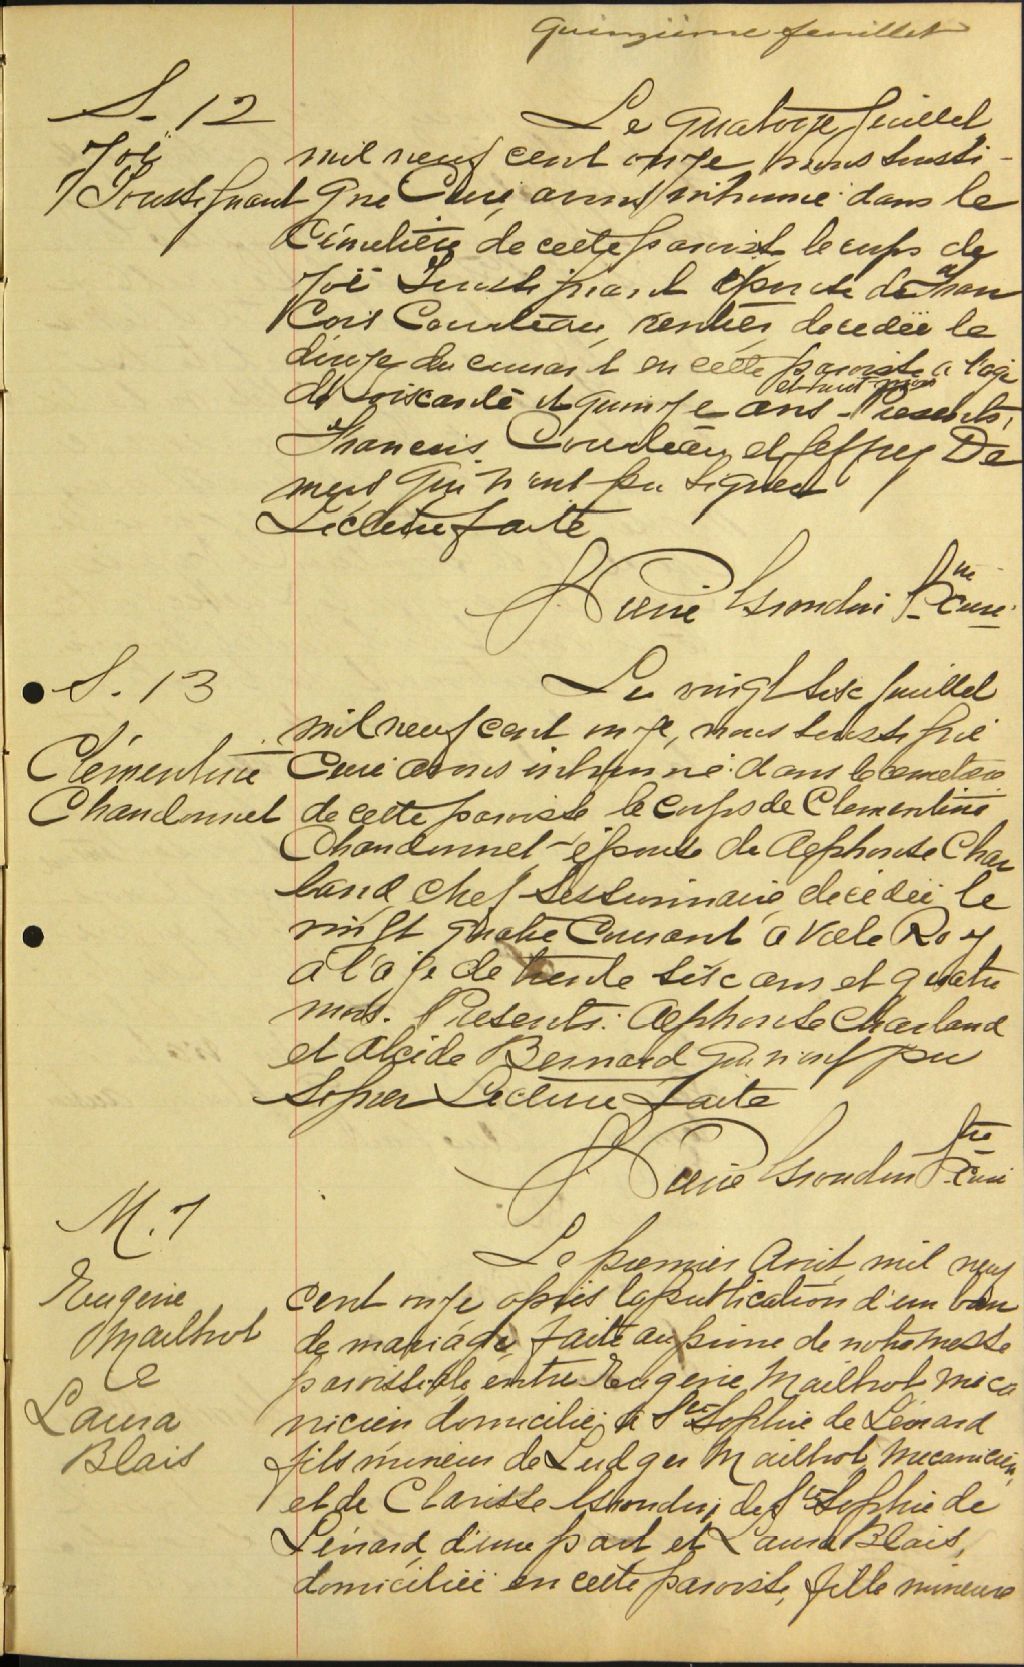 Quinzième feuillet
S. 12
Zoé
Soussignant
Le quatorze juillet
mil neuf cent onze nous soussi-
gné Curé, avons inhumé dans le
Cimetière de cette paroisse le corps de
Zoé Soussignant épouse de Fran
çois Courteau, rentier, décédée le
douze du courant en cette paroisse à l'âge
de soixante et quinze ans et huit mois - Présents,
François Courteau et Jeffrey De
mers qui n'ont pu signer
Lecture faite
J. Pierre Grondin Ptre curé
S. 13
Clémentine
Chandonnet
Le vingt six juillet
mil neuf cent onze, nous soussigné
Curé avons inhumé dans le cimetière
de cette paroisse le corps de Clementine
Chandonnet - épouse de Alphonse Char
land, chef sectionnaire, décédée le
vingt quatre Courant à Vale Roy
à l'âge de trente six ans et quatre
mois. Présents: Alphonse Charland
et Alcide Bernard qui n'ont pu
signer Lecture faite
J. Pierre Grondin Ptre Curé
M. 7
Eugène
Mailhot
&
Laura
Blais
Le premier Août mil neuf
cent onze après la publication d'un ban
de mariage, faite au prône de notre messe
paroissiale entre Eugène Mailhot, méca
nicien domicilié, à Ste Sophie de Lévrard
fils mineur de Ludger Mailhot, mécanicien,
et de Clarisse Grondin, de Ste Sophie de
Lévrard, d'une part et Laura Blais,
domiciliée en cette paroisse, fille mineure